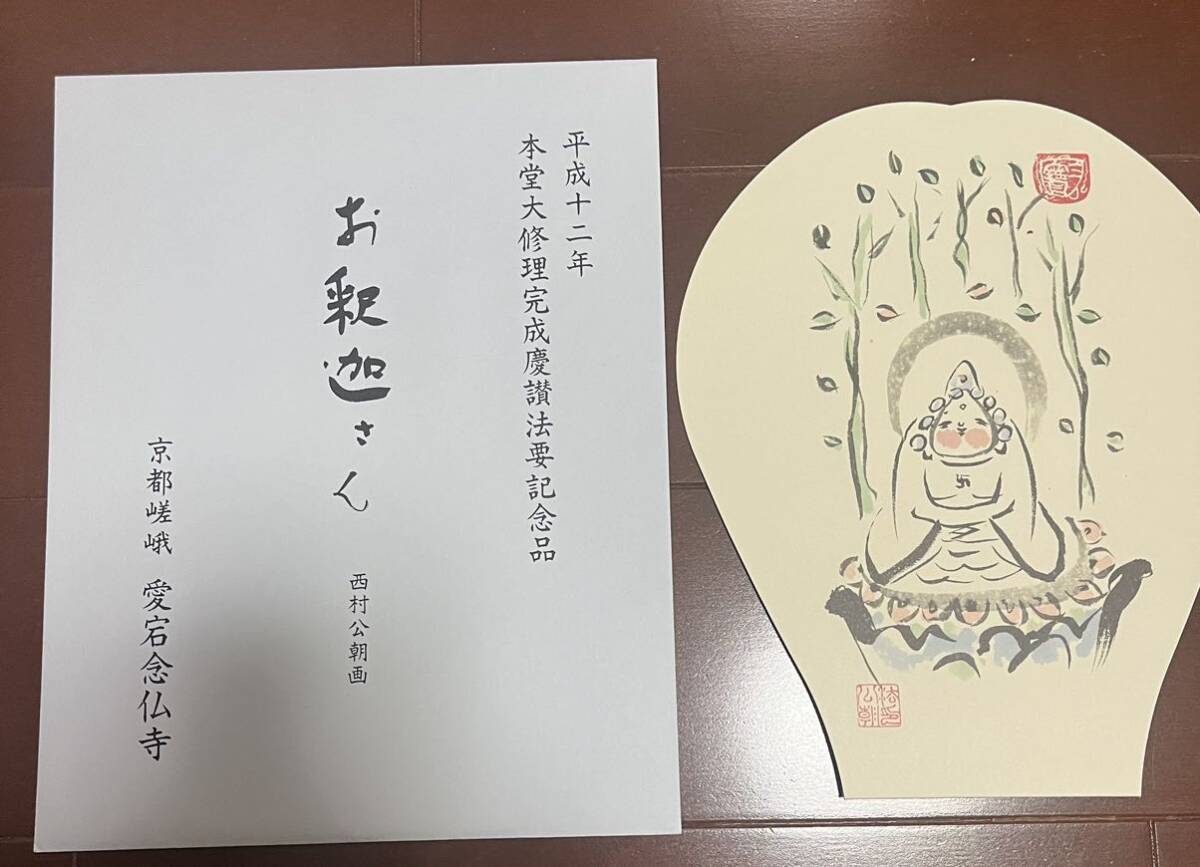 平成十二年
本堂大修理完成慶讃法要記念品
お釈迦さん
西村公朝画
京都嵯峨 愛宕念仏寺
卍